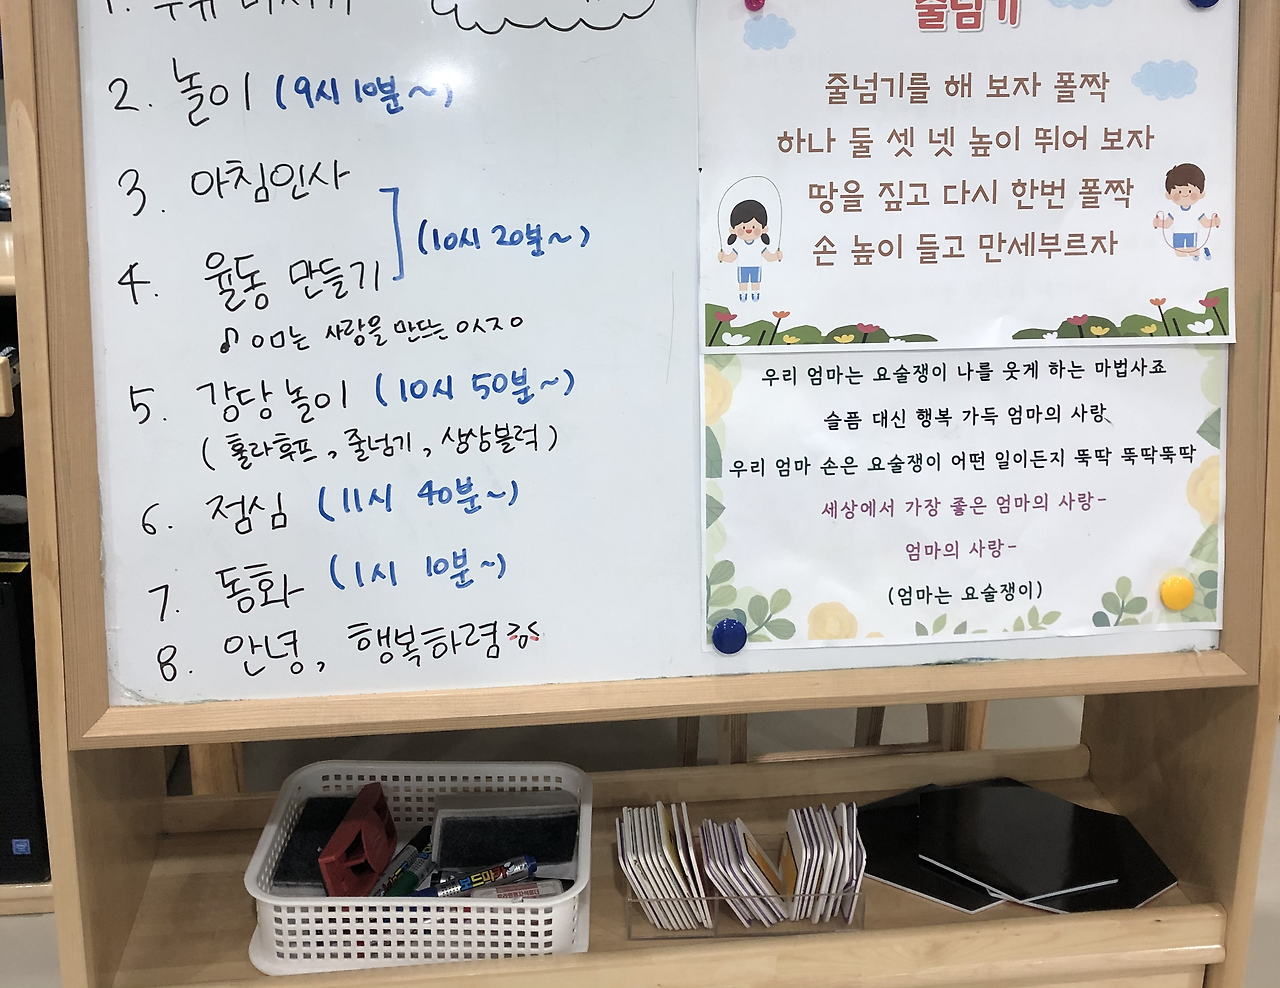 2. 놀이 (9시 10분~)
3. 아침인사
4. 율동 만들기
(10시 20분~)
♪ ㅇㅁ는 사랑을 만드는 ㅇㅅㅈㅇ
5. 강당놀이 (10시 50분~)
(훌라후프, 줄넘기, 생상블럭)
6. 점심 (11시 40분~)
7. 동화 (1시 10분~)
8. 안녕, 행복하렴
줄넘기
줄넘기를 해 보자 폴짝
하나 둘 셋 넷 높이 뛰어 보자
땅을 짚고 다시 한번 폴짝
손 높이 들고 만세부르자
우리 엄마는 요술쟁이 나를 웃게 하는 마법사죠
슬픔 대신 행복 가득 엄마의 사랑
우리 엄마 손은 요술쟁이 어떤 일이든지 뚝딱 뚝딱뚝딱
세상에서 가장 좋은 엄마의 사랑-
엄마의 사랑-
(엄마는 요술쟁이)
보드마카